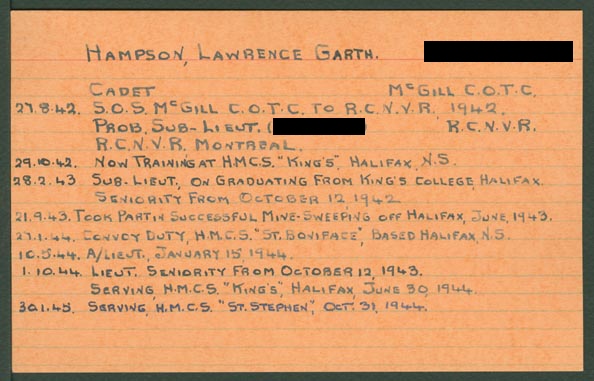 HAMPSON, LAWRENCE GARTH.
CADET McGILL C.O.T.C.
27.8.42. S.O.S. McGILL C.O.T.C. TO R.C.N.V.R. 1942.
PROB. SUB-LIEUT. ( ) R.C.N.V.R.
R.C.N.V.R. MONTREAL.
29.10.42. NOW TRAINING AT H.M.C.S. "KING'S", HALIFAX, N.S.
28.2.43 SUB-LIEUT., ON GRADUATING FROM KING'S COLLEGE, HALIFAX.
SENIORITY FROM OCTOBER 12, 1942
21.9.43. TOOK PART IN SUCCESSFUL MINE-SWEEPING OFF HALIFAX, JUNE, 1943.
27.1.44. CONVOY DUTY, H.M.C.S. "ST. BONIFACE", BASED HALIFAX, N.S.
10.5.44. A/LIEUT., JANUARY 15, 1944.
1.10.44. LIEUT. SENIORITY FROM OCTOBER 12, 1943.
SERVING, H.M.C.S. "KING'S", HALIFAX, JUNE 30, 1944.
30.1.45. SERVING, H.M.C.S. "ST. STEPHEN", OCT. 31, 1944.